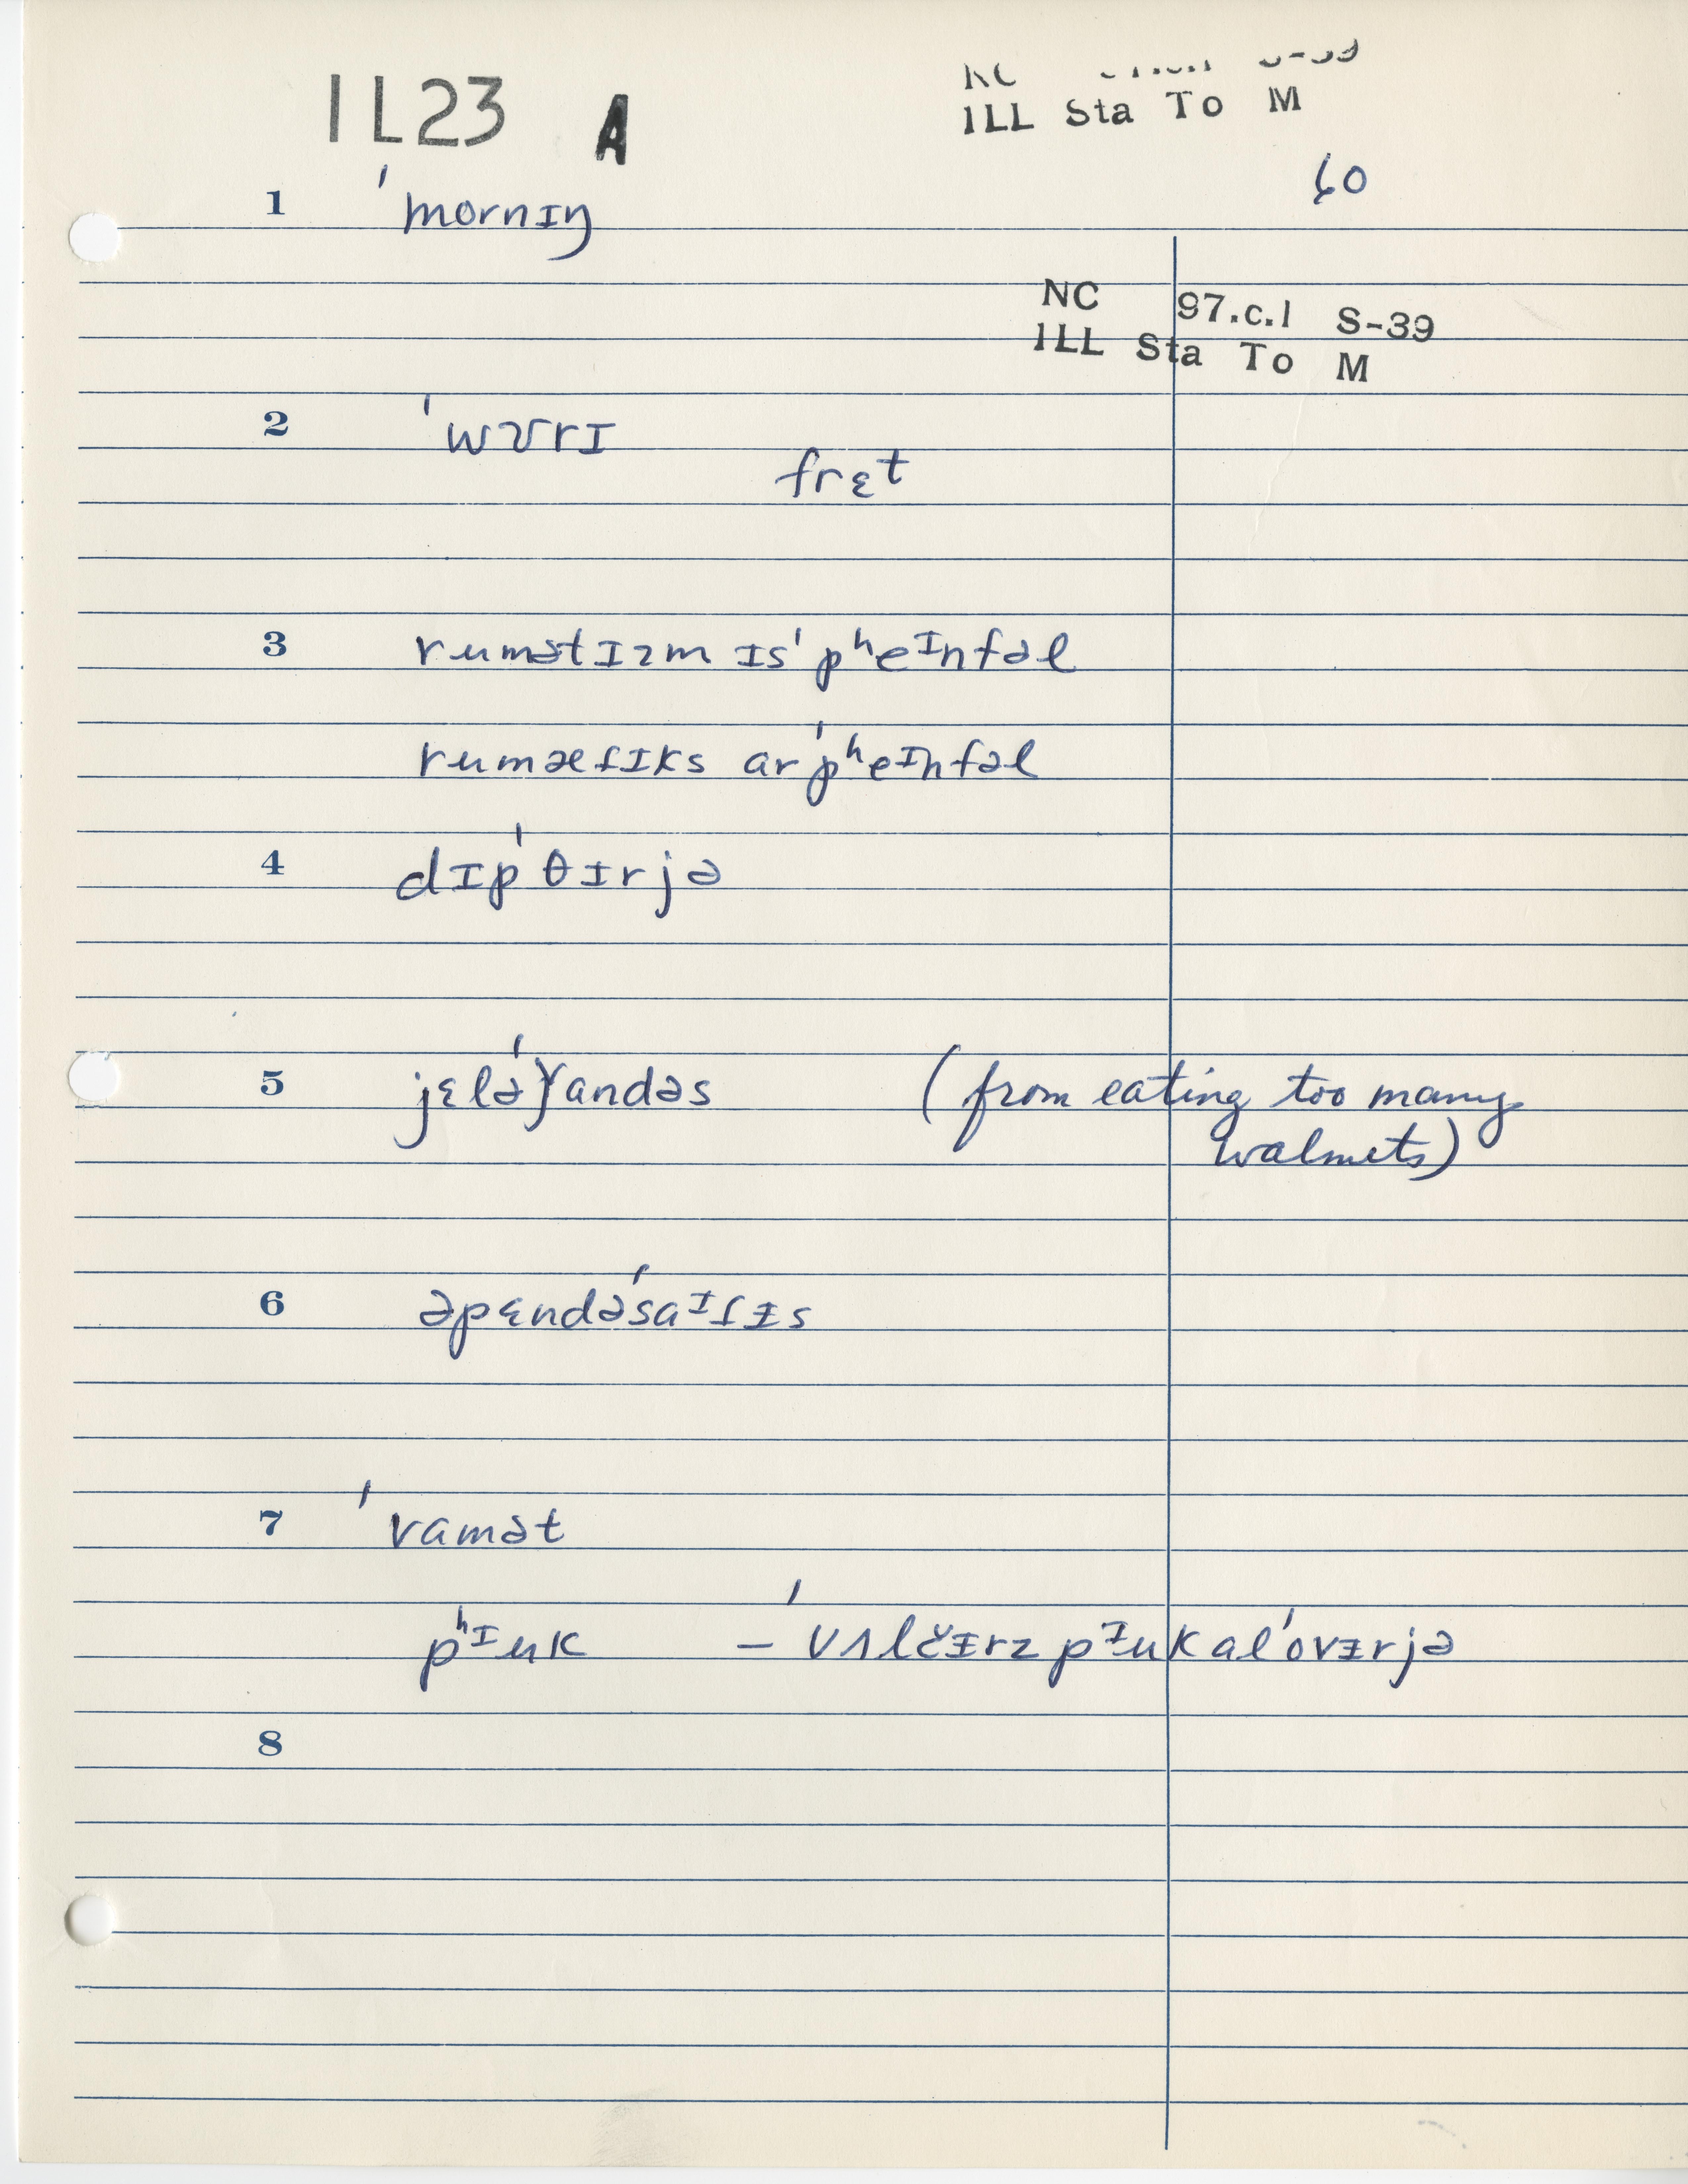 IL23 A
ILL Sta To M
60
1 ˈmornɪŋ
NC 97.c.1 S-39
ILL Sta To M
2 ˈwʊrɪ
frɛt
3 rumətɪzm ɪsˈpʰeᴵnfəl
rumæɾɪks arˈpʰeɪnfəl
4 dɪpˈθɪrjə
5 jɛləˈǰandəs (from eating too many
walnuts)
6 əpɛndəˈsaᴵɾɪs
7 ˈvamət
pʰᴵuk – ˈvʌlčɪrz pᴵuk alˈovɪrjə
8